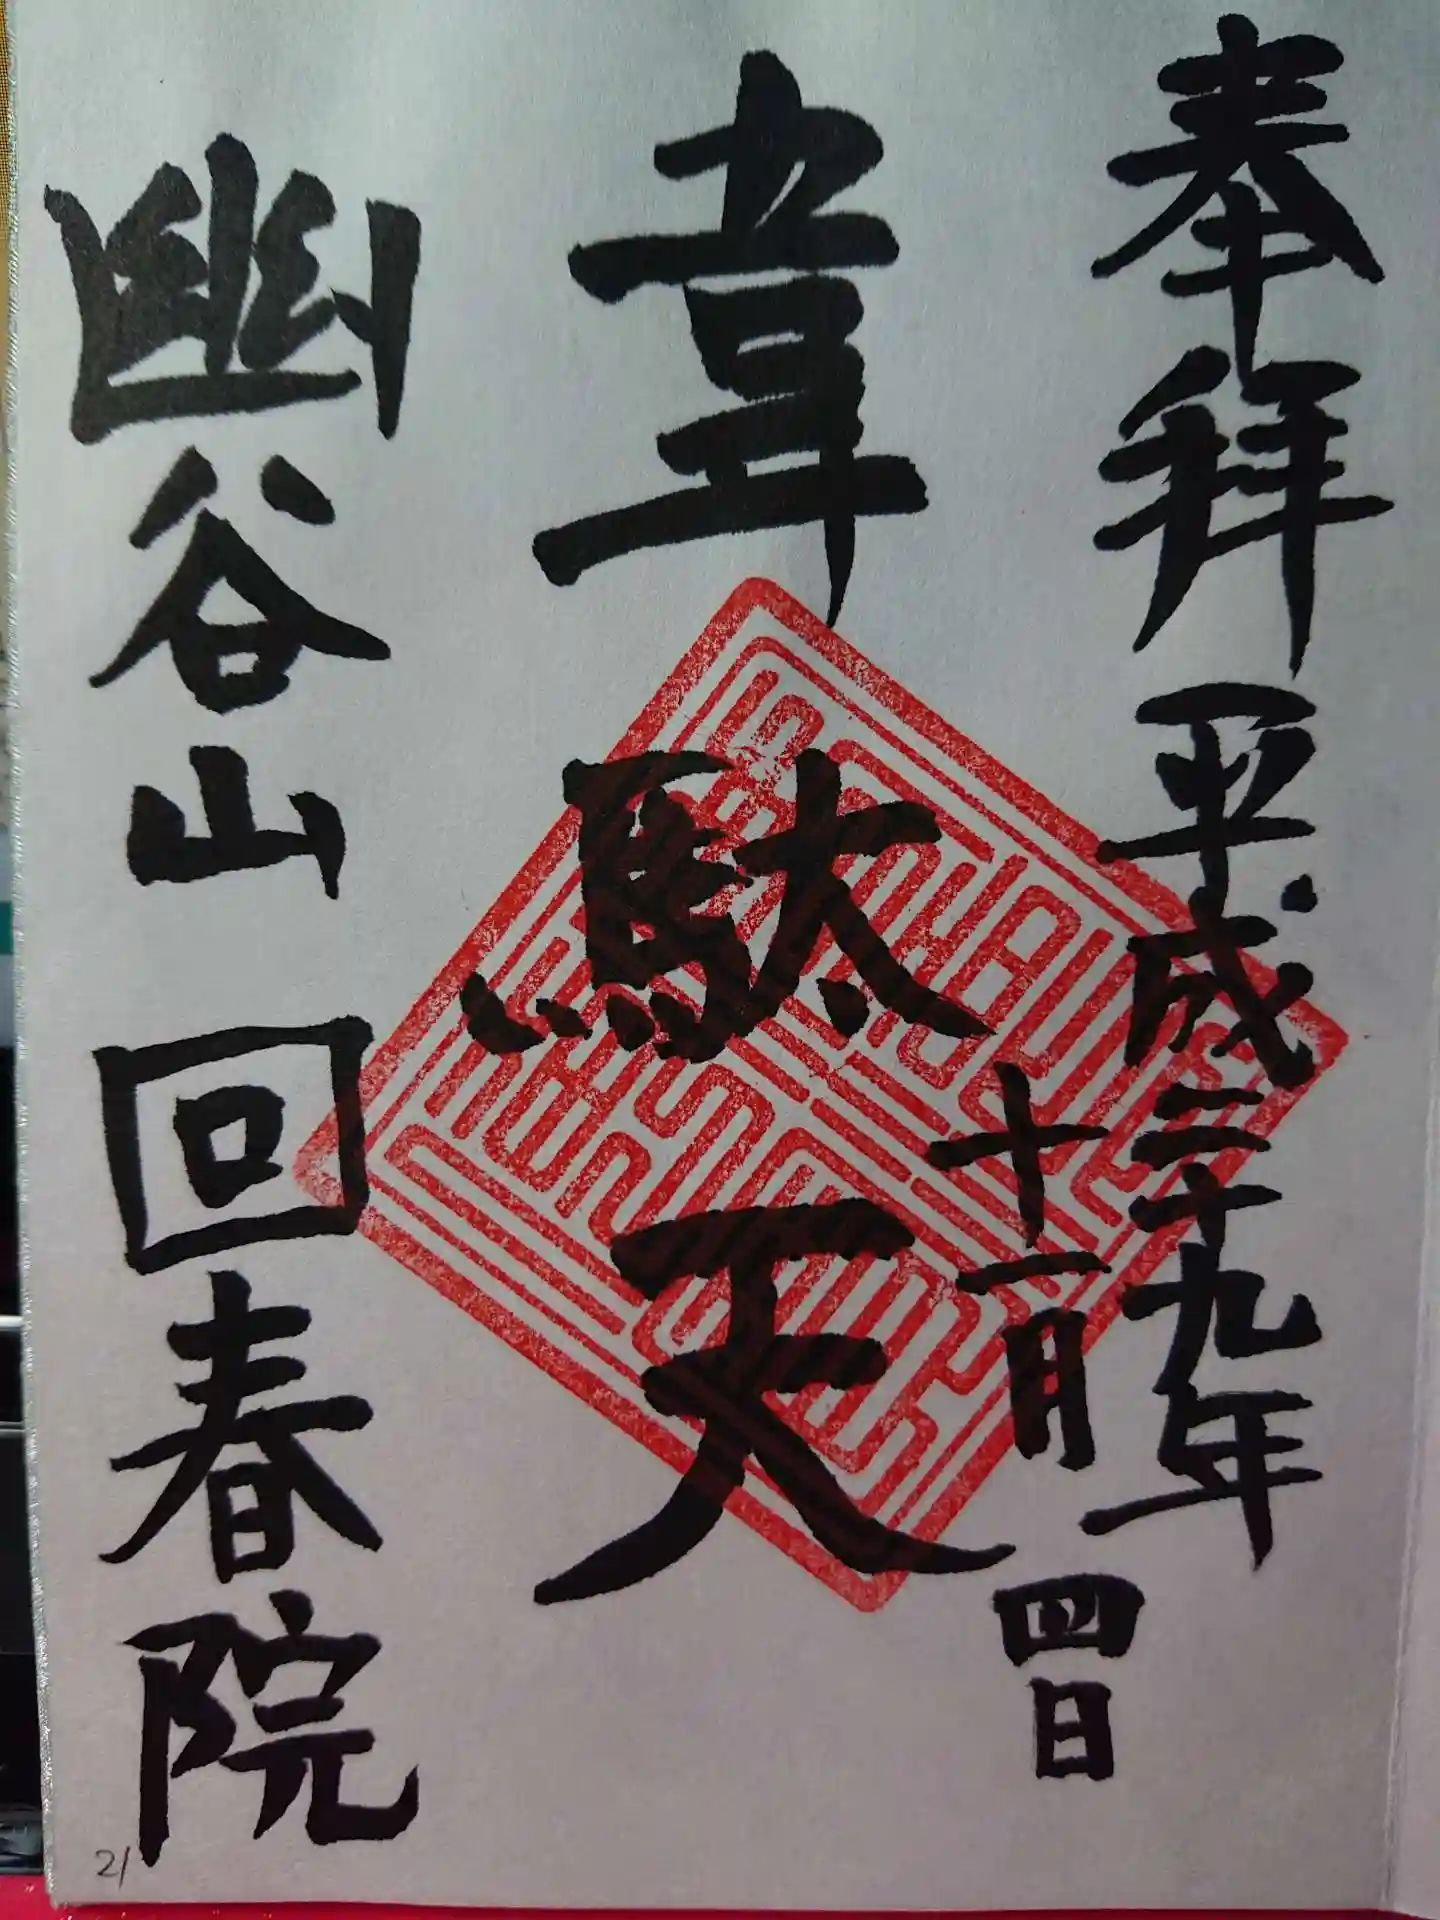 奉拝 平成二十九年
十一月四日
韋駄天
幽谷山 回春院
21